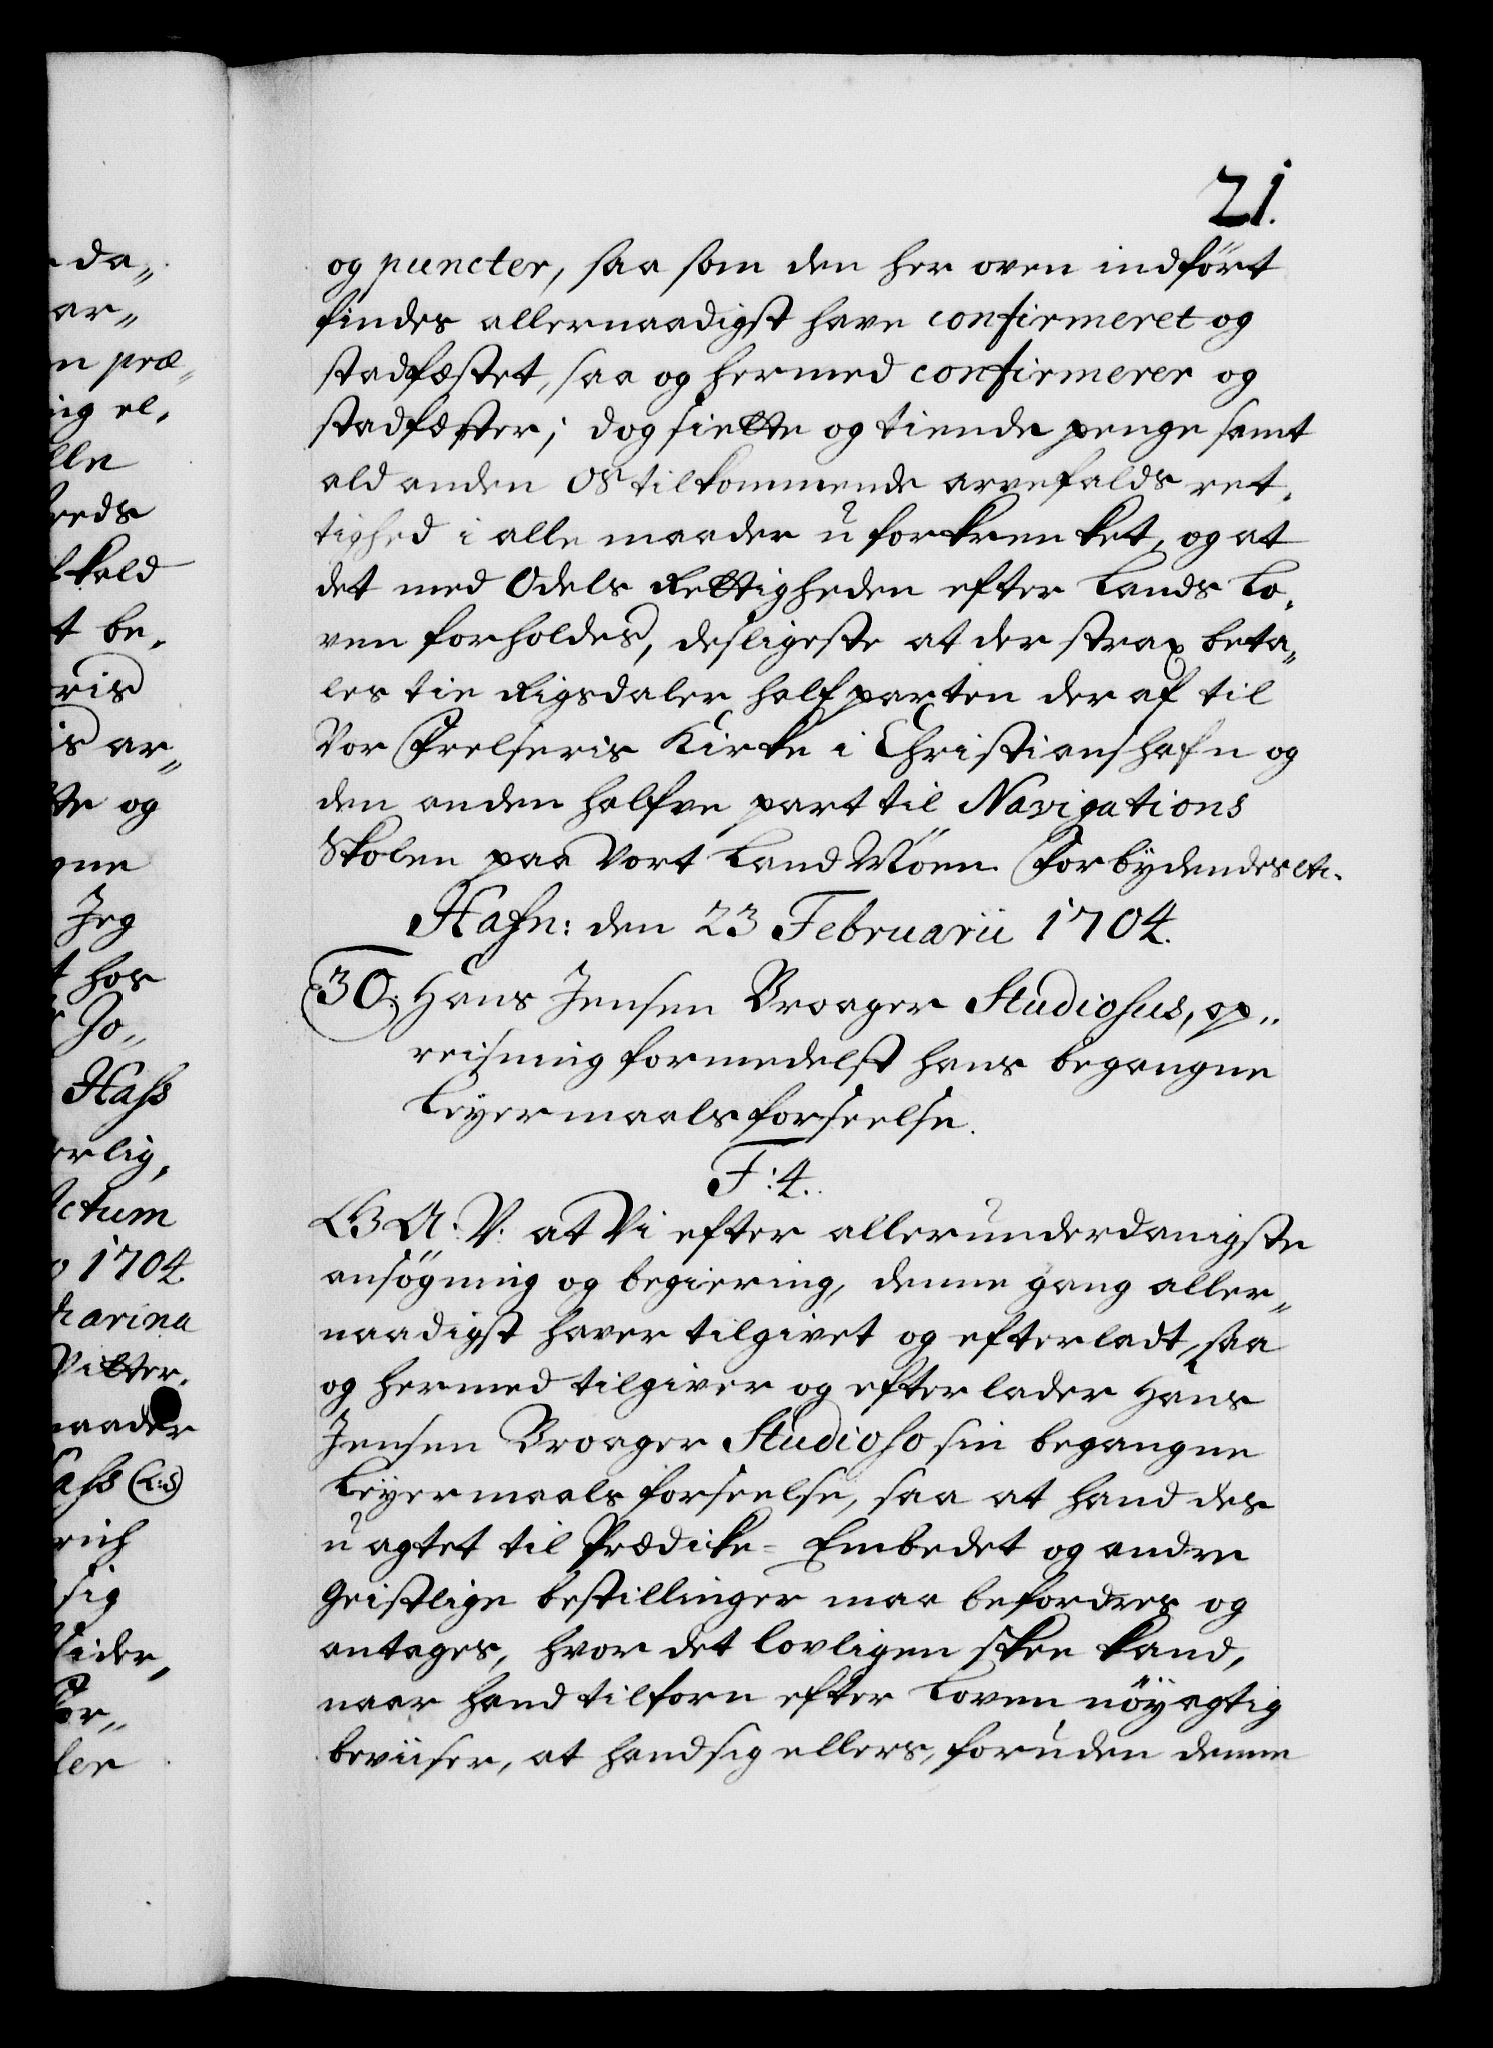 21.
og puncter, saa som den her oven indført
findes allernaadigst have confirmeret og
stadfæstet, saa og hermed confirmerer og
stadfæster; dog siette og tiende penge samt
ald anden OS tilkommende arvefalds ret„
tighed i alle maader u forkrenket, og at
det med Odels Rettigheden efter Lands Lo„
ven forholdes, desligeste at der strax beta„
les tie Rigsdaler half parten der af til
Vor Frelseris Kirke i Christianshafn og
den anden halfve part til Navigations
Skolen paa Vort Land Møen. Forbydendes etc.
Hafn: den 23 Februarii 1704.
30. Hans Jensen Broager Studiosus, op„
reisning formedelst hans begangne
Leyermaals forseelse.
F: 4.
G. A. V. at Vi efter allerunderdanigste
ansøgning og begiering, denne gang aller„
naadigst haver tilgivet og efterladt, saa
og hermed tilgiver og efterlader Hans
Jensen Broager Studioso sin begangne
Leyermaals forseelse, saa at hand des
u agtet til Prædike-Embedet og andre
Geistlige bestillinger maa befordres og
antages, hvor det lovligen skee kand,
naar hand tilforn efter Loven nøyagtig
beviiser, at hand sig ellers, foruden denne